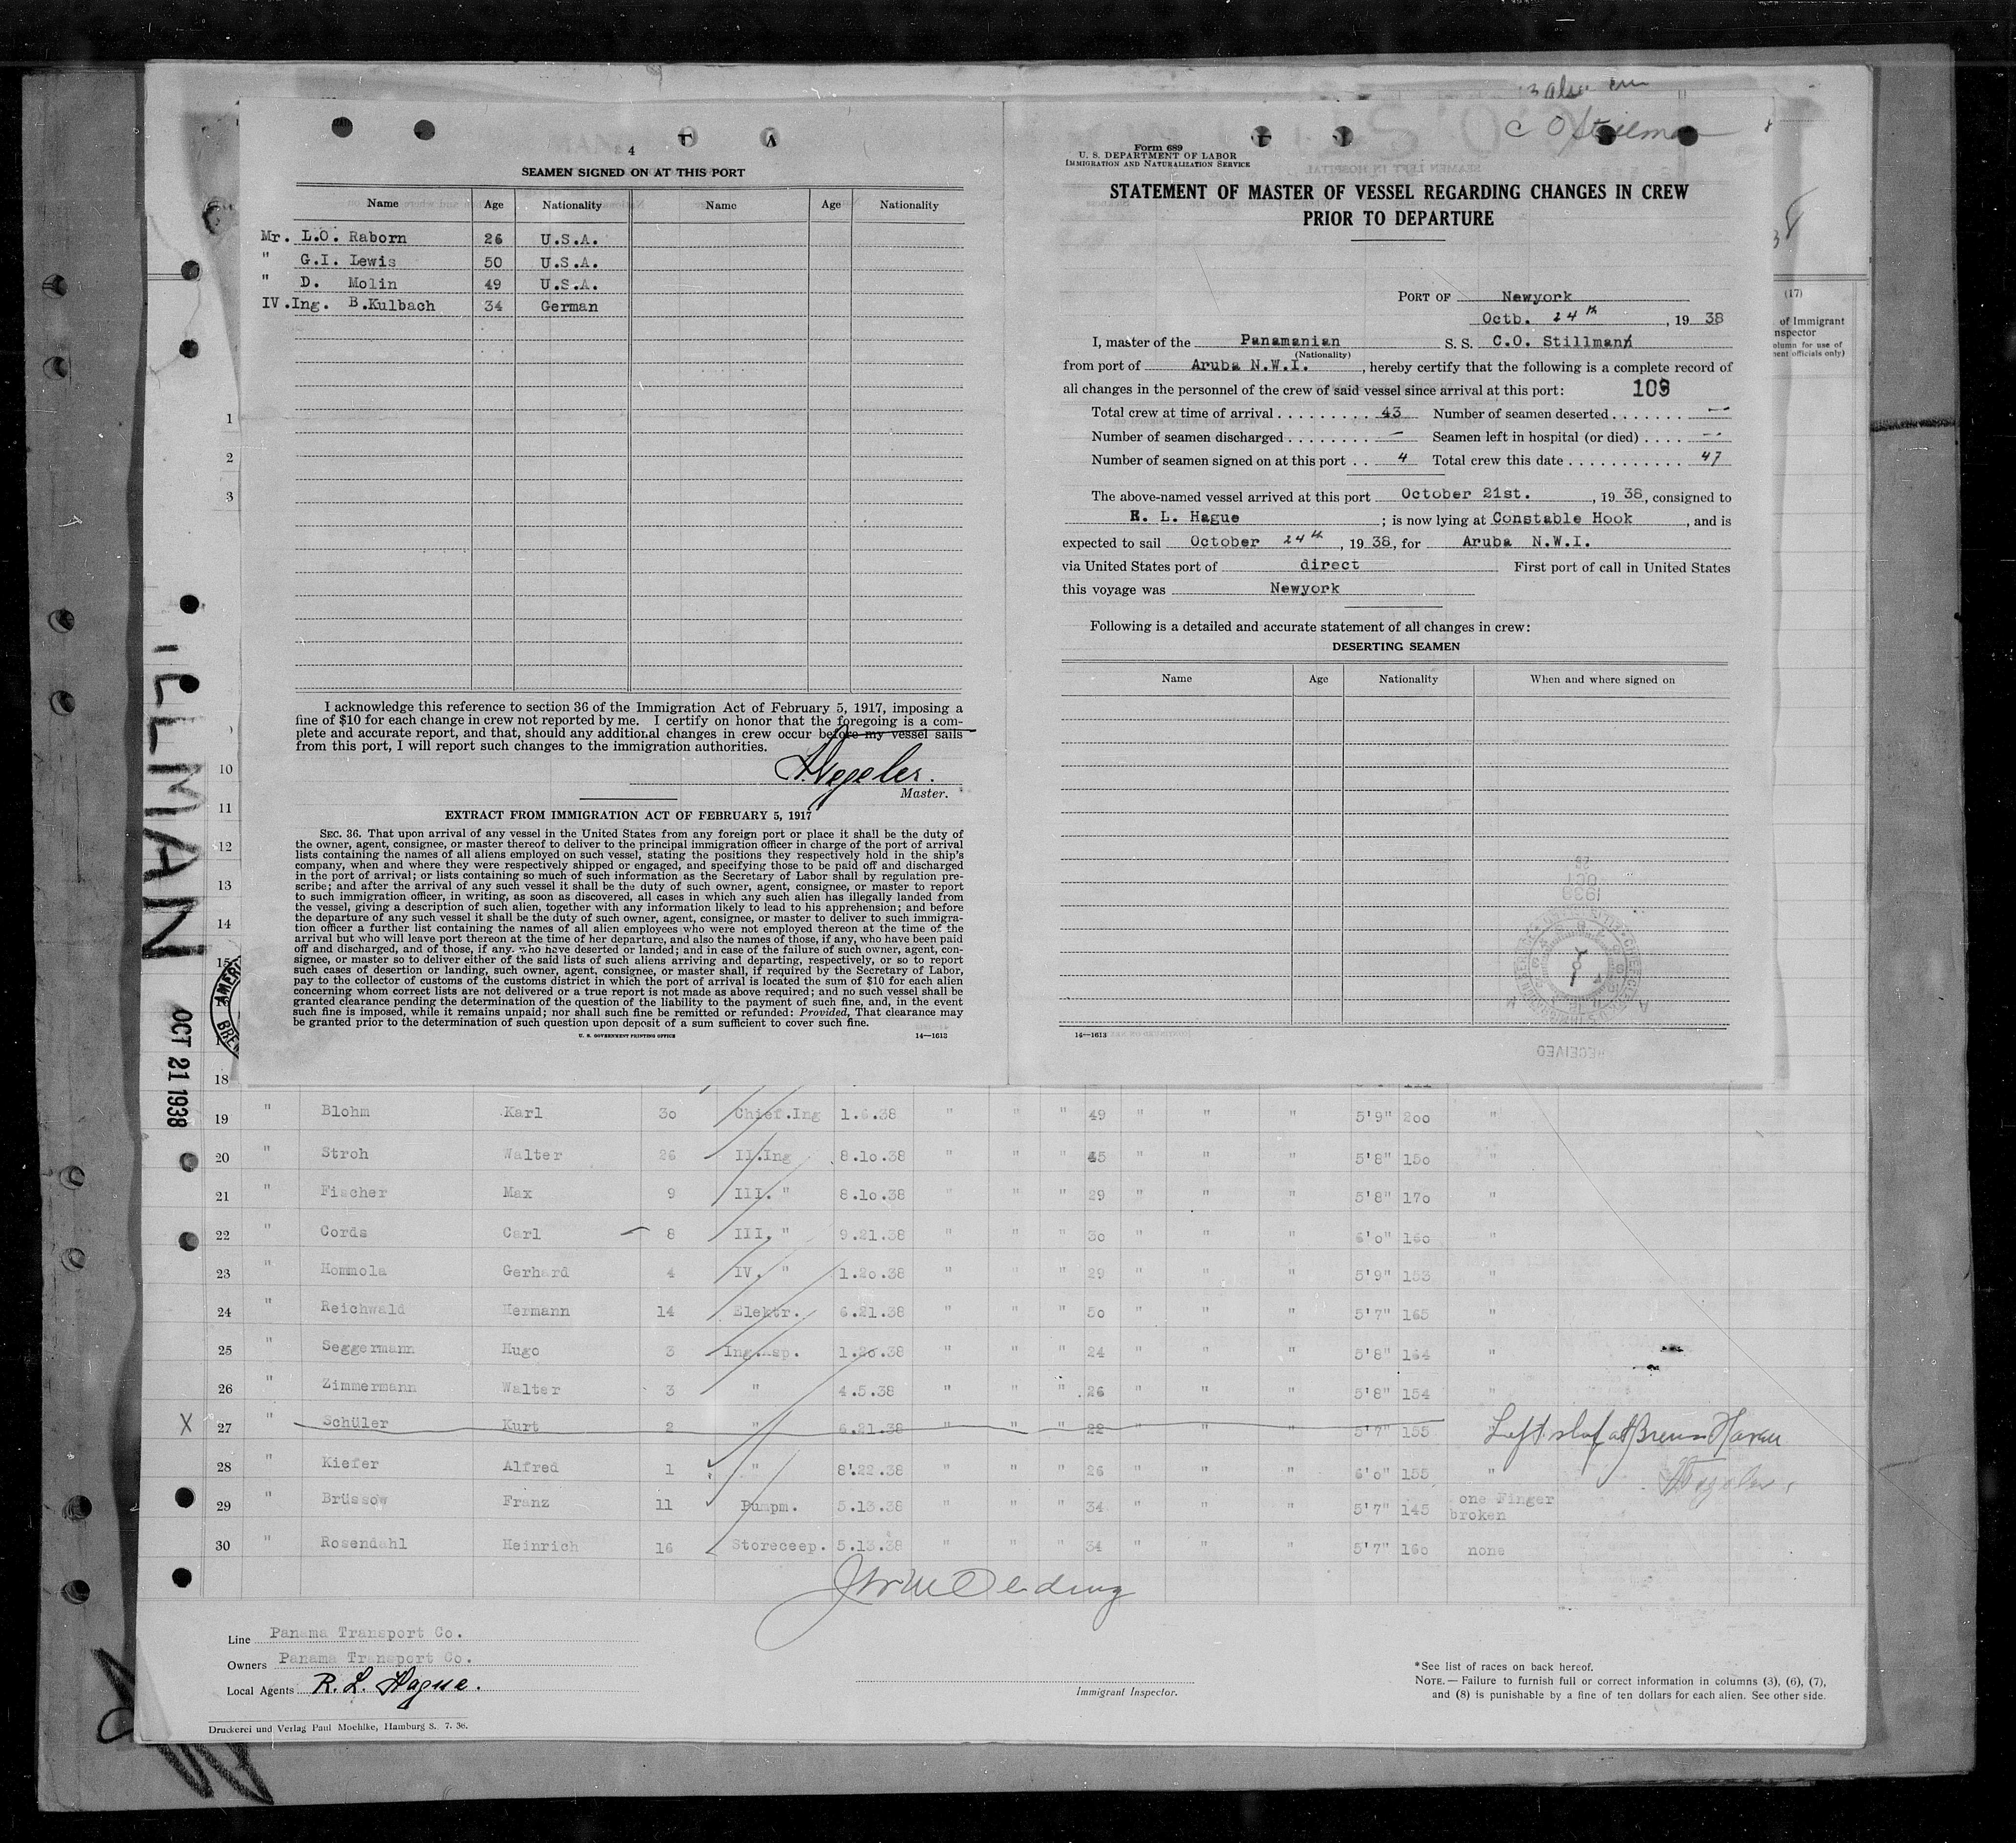 4
SEAMEN SIGNED ON AT THIS PORT
Name Age Nationality Name Age Nationality
Mr. L.O. Raborn 26 U.S.A.
" G.I. Lewis 50 U.S.A.
" D. Molin 49 U.S.A.
IV.Ing. B.Kulbach 34 German
I acknowledge this reference to section 36 of the Immigration Act of February 5, 1917, imposing a
fine of $10 for each change in crew not reported by me. I certify on honor that the foregoing is a com-
plete and accurate report, and that, should any additional changes in crew occur before my vessel sails
from this port, I will report such changes to the immigration authorities.
Master.
EXTRACT FROM IMMIGRATION ACT OF FEBRUARY 5, 1917
SEC. 36. That upon arrival of any vessel in the United States from any foreign port or place it shall be the duty of
the owner, agent, consignee, or master thereof to deliver to the principal immigration officer in charge of the port of arrival
lists containing the names of all aliens employed on such vessel, stating the positions they respectively hold in the ship's
company, when and where they were respectively shipped or engaged, and specifying those to be paid off and discharged
in the port of arrival; or lists containing so much of such information as the Secretary of Labor shall by regulation pre-
scribe; and after the arrival of any such vessel it shall be the duty of such owner, agent, consignee, or master to report
to such immigration officer, in writing, as soon as discovered, all cases in which any such alien has illegally landed from
the vessel, giving a description of such alien, together with any information likely to lead to his apprehension; and before
the departure of any such vessel it shall be the duty of such owner, agent, consignee, or master to deliver to such immigra-
tion officer a further list containing the names of all alien employees who were not employed thereon at the time of the
arrival but who will leave port thereon at the time of her departure, and also the names of those, if any, who have been paid
off and discharged, and of those, if any, who have deserted or landed; and in case of the failure of such owner, agent, con-
signee, or master so to deliver either of the said lists of such aliens arriving and departing, respectively, or so to report
such cases of desertion or landing, such owner, agent, consignee, or master shall, if required by the Secretary of Labor,
pay to the collector of customs of the customs district in which the port of arrival is located the sum of $10 for each alien
concerning whom correct lists are not delivered or a true report is not made as above required; and no such vessel shall be
granted clearance pending the determination of the question of the liability to the payment of such fine, and, in the event
such fine is imposed, while it remains unpaid; nor shall such fine be remitted or refunded: Provided, That clearance may
be granted prior to the determination of such question upon deposit of a sum sufficient to cover such fine.
U. S. GOVERNMENT PRINTING OFFICE 14—1613
C O Stillman
Form 689
U. S. DEPARTMENT OF LABOR
IMMIGRATION AND NATURALIZATION SERVICE
STATEMENT OF MASTER OF VESSEL REGARDING CHANGES IN CREW
PRIOR TO DEPARTURE
PORT OF Newyork
Octb. 24th, 1938
I, master of the Panamanian S. S. C.O. Stillman
(Nationality)
from port of Aruba N.W.I., hereby certify that the following is a complete record of
all changes in the personnel of the crew of said vessel since arrival at this port: 109
Total crew at time of arrival 43 Number of seamen deserted —
Number of seamen discharged — Seamen left in hospital (or died) —
Number of seamen signed on at this port 4 Total crew this date 47
The above-named vessel arrived at this port October 21st., 1938, consigned to
R. L. Hague; is now lying at Constable Hook, and is
expected to sail October 24th, 1938, for Aruba N.W.I.
via United States port of direct First port of call in United States
this voyage was Newyork
Following is a detailed and accurate statement of all changes in crew:
DESERTING SEAMEN
Name Age Nationality When and where signed on
14—1613
RECEIVED
(17)
of Immigrant
nspector
olumn for use of
ment officials only)
1
2
3
10
11
12
13
14
15
18
LLMAN
OCT 21 1938
19 " Blohm Karl 30 Chief.Ing 1.6.38 " " " 49 " " " 5'9" 200 "
20 " Stroh Walter 26 II.Ing 8.10.38 " " " 45 " " " 5'8" 150 "
21 " Fischer Max 9 III. " 8.10.38 " " " 29 " " " 5'8" 170 "
22 " Cords Carl 8 III. " 9.21.38 " " " 30 " " " 6'0" 160 "
23 " Hommola Gerhard 4 IV. " 1.20.38 " " " 29 " " " 5'9" 153 "
24 " Reichwald Hermann 14 Elektr. 6.21.38 " " " 50 " " " 5'7" 165 "
25 " Seggermann Hugo 3 Ing.Asp. 1.20.38 " " " 24 " " " 5'8" 164 "
26 " Zimmermann Walter 3 " 4.5.38 " " " 26 " " " 5'8" 154 "
X 27 " Schüler Kurt 2 " 6.21.38 " " " 22 " " " 5'7" 155 Left ship at Bremerhaven
28 " Kiefer Alfred 1 " 8.22.38 " " " 26 " " " 6'0" 155 "
29 " Brüssow Franz 11 Pumpm. 5.13.38 " " " 34 " " " 5'7" 145 one Finger broken
30 " Rosendahl Heinrich 16 Storeceep. 5.13.38 " " " 34 " " " 5'7" 160 none
Line Panama Transport Co.
Owners Panama Transport Co.
Local Agents R. L. Hague.
Immigrant Inspector.
*See list of races on back hereof.
NOTE.—Failure to furnish full or correct information in columns (3), (6), (7),
and (8) is punishable by a fine of ten dollars for each alien. See other side.
Druckerei und Verlag Paul Moehlke, Hamburg 8. 7. 36.